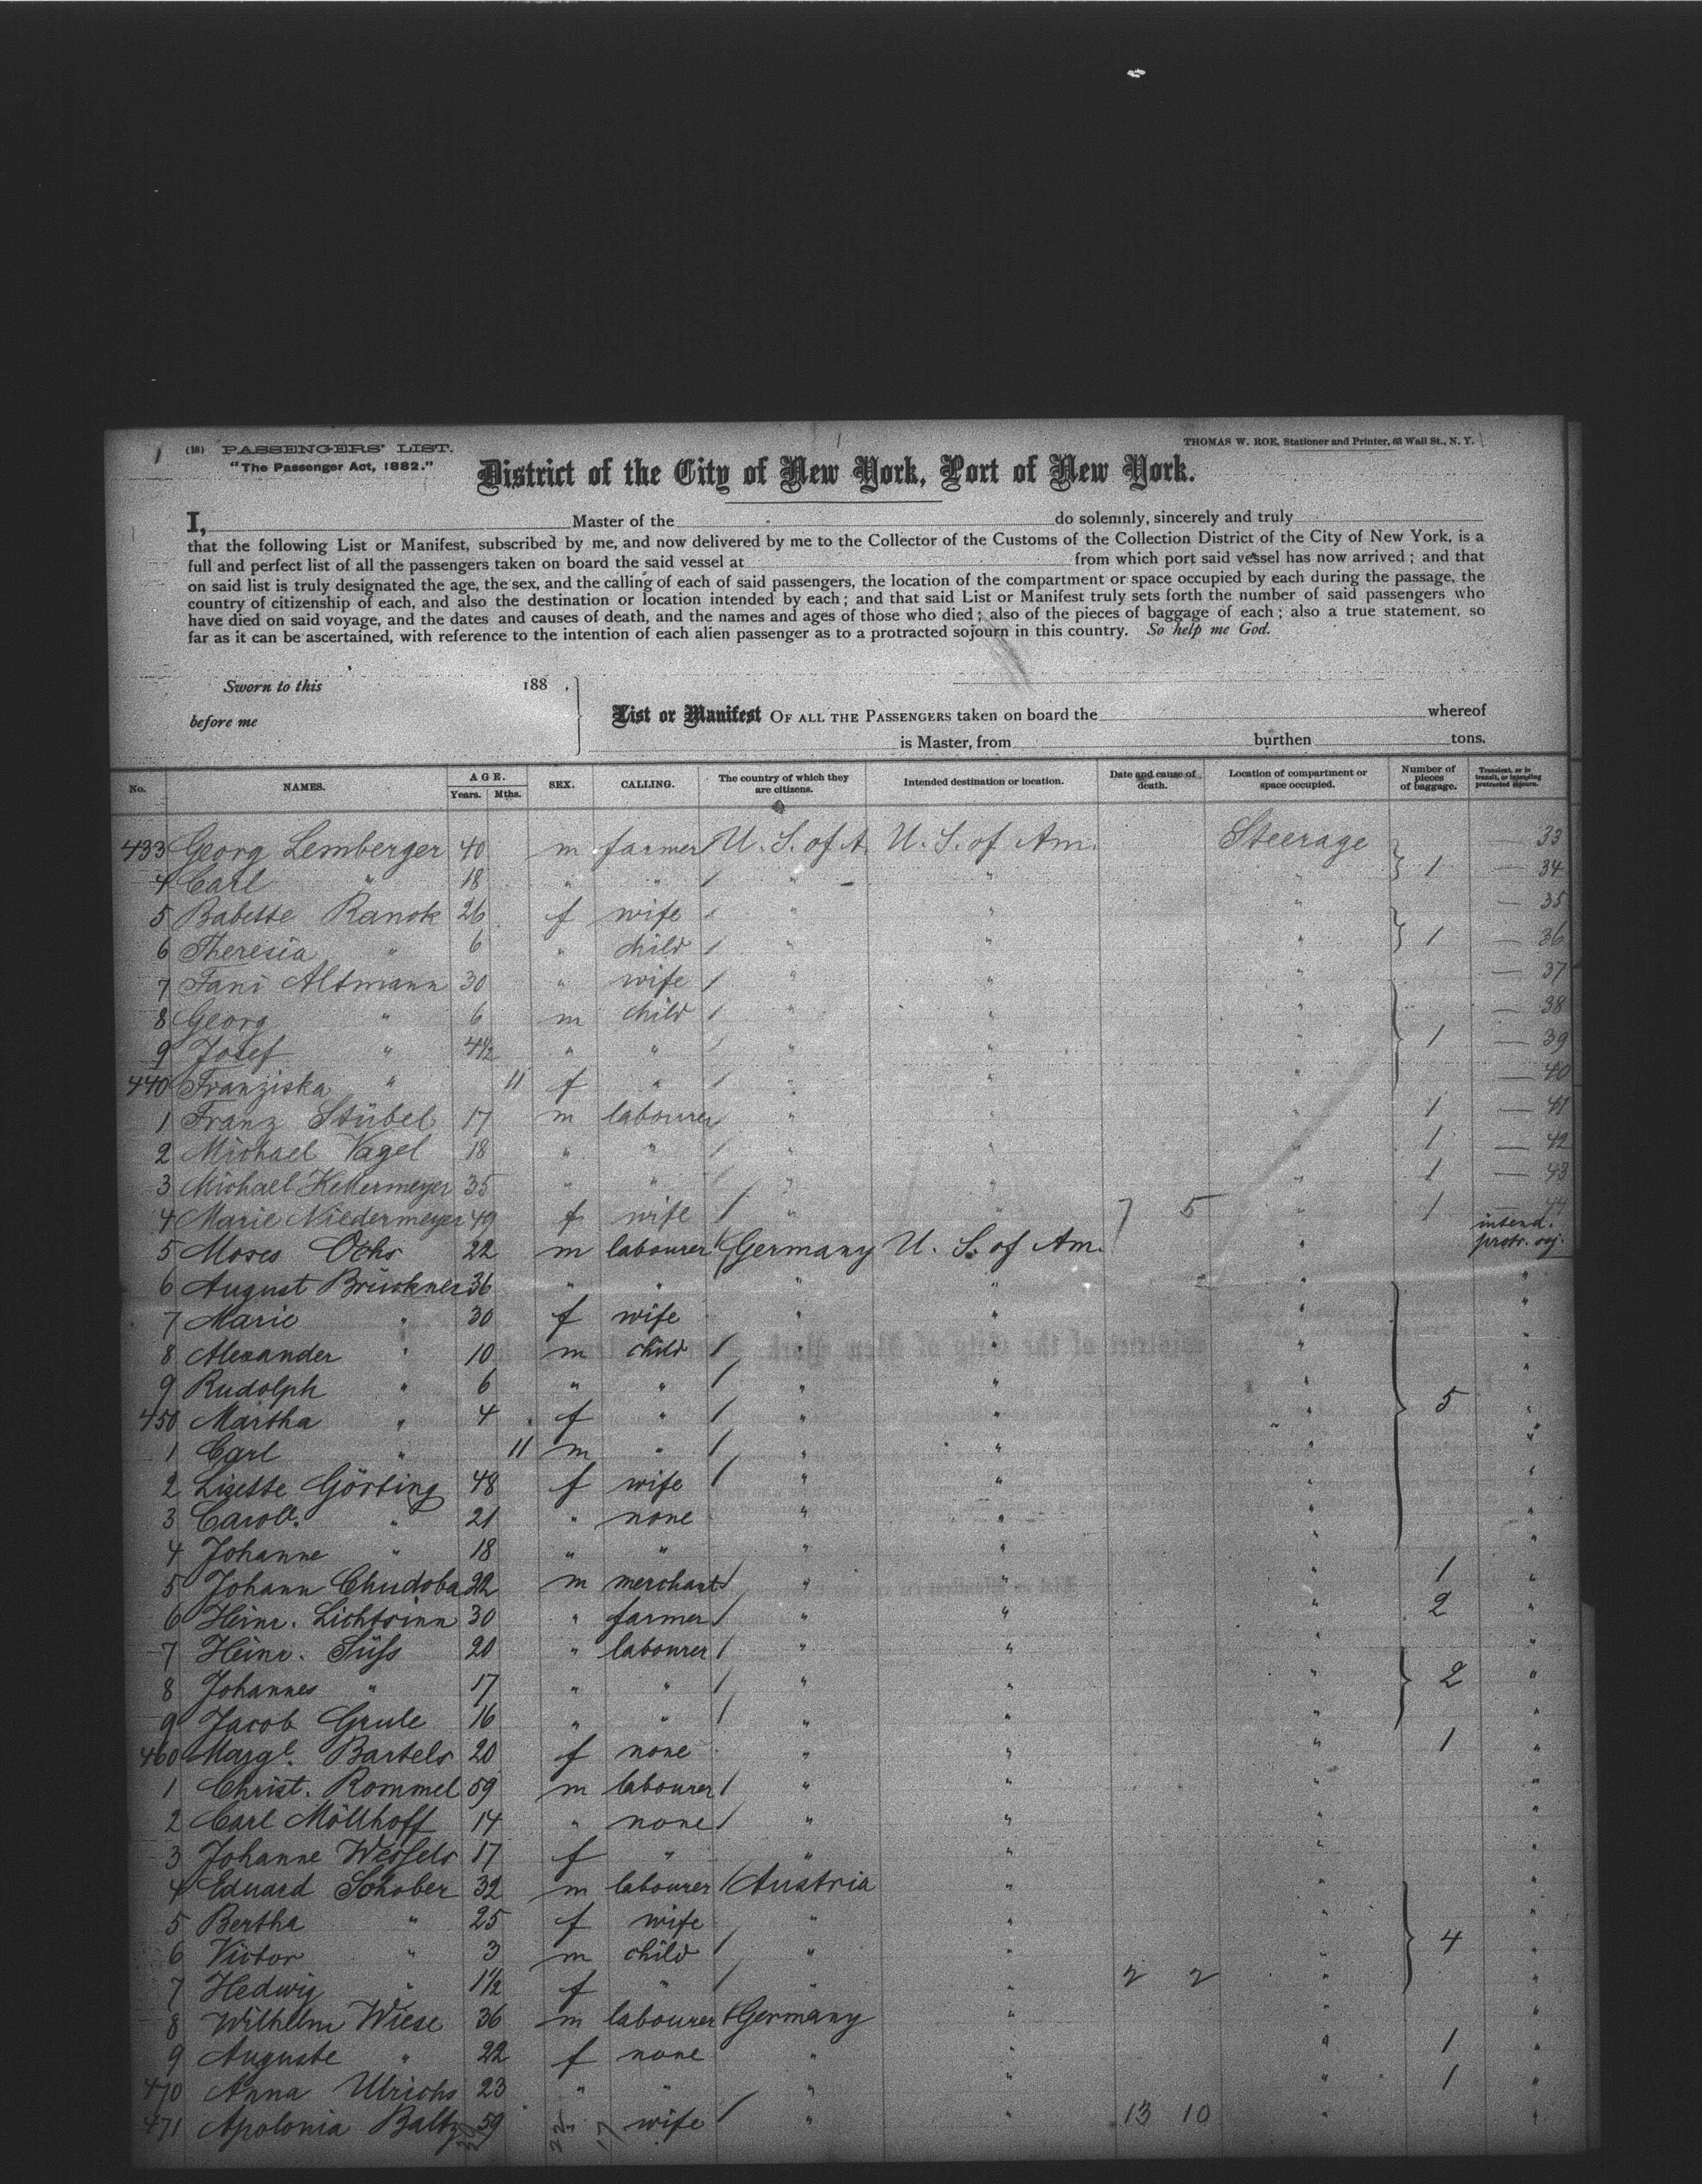 (18) PASSENGERS' LIST.
THOMAS W. ROE, Stationer and Printer, 63 Wall St., N. Y.
"The Passenger Act, 1882."
District of the City of New York, Port of New York.
I, Master of the do solemnly, sincerely and truly
that the following List or Manifest, subscribed by me, and now delivered by me to the Collector of the Customs of the Collection District of the City of New York, is a
full and perfect list of all the passengers taken on board the said vessel at from which port said vessel has now arrived; and that
on said list is truly designated the age, the sex, and the calling of each of said passengers, the location of the compartment or space occupied by each during the passage, the
country of citizenship of each, and also the destination or location intended by each; and that said List or Manifest truly sets forth the number of said passengers who
have died on said voyage, and the dates and causes of death, and the names and ages of those who died; also of the pieces of baggage of each; also a true statement, so
far as it can be ascertained, with reference to the intention of each alien passenger as to a protracted sojourn in this country. So help me God.
Sworn to this 188 .
before me
List or Manifest OF ALL THE PASSENGERS taken on board the whereof
is Master, from burthen tons.
No. NAMES. AGE. Years. Mths. SEX. CALLING. The country of which they are citizens. Intended destination or location. Date and cause of death. Location of compartment or space occupied. Number of pieces of baggage. Transient, or in transit, or intending protracted sojourn.
433 Georg Lemberger 40 m farmer U. S. of A. U. S. of Am. Steerage — 33
4 Carl " 18 " " / " " " 1 — 34
5 Babette Ranok 26 f wife / " " " — 35
6 Theresia " 6 " child / " " " 1 — 36
7 Fani Altmann 30 " wife / " " " — 37
8 Georg " 6 m child / " " " — 38
9 Josef " 4½ " " / " " " 1 — 39
440 Franziska " 11 f " / " " " — 40
1 Franz Stübel 17 m labourer " " " 1 — 41
2 Michael Vagel 18 " " / " " " 1 — 42
3 Michael Kellermeyer 35 " " / " " " 1 — 43
4 Marie Niedermeyer 49 f wife / " " 7 5 " 1 44
5 Moses Ochs 22 m labourer / Germany U. S. of Am. " intend. protr. soj.
6 August Brückner 36 " " " " " "
7 Marie " 30 f wife " " " "
8 Alexander " 10 m child / " " " "
9 Rudolph " 6 " " / " " " "
450 Martha " 4 f " / " " " 5 "
1 Carl " 11 m " / " " " "
2 Lisette Görting 48 f wife / " " " "
3 Caroll. " 21 " none " " " "
4 Johanne " 18 " " " " " "
5 Johann Chudoba 22 m merchant / " " " 1 "
6 Heinr. Lichtsinn 30 " farmer / " " " 2 "
7 Heinr. Süss 20 " labourer / " " " "
8 Johannes " 17 " " / " " " 2 "
9 Jacob Grule 16 " " / " " " "
460 Margt. Bartels 20 f none " " " 1 "
1 Christ. Rommel 59 m labourer / " " " "
2 Carl Möllhoff 14 " none / " " " "
3 Johanne Wessels 17 f " " " " "
4 Eduard Schober 32 m labourer / Austria " " "
5 Bertha " 25 f wife " " " "
6 Victor " 3 m child / " " " 4 "
7 Hedwig " 1½ f " / " " 2 2 " "
8 Wilhelm Wiese 36 m labourer / Germany " " "
9 Auguste " 22 f none " " " 1 "
470 Anna Ulrichs 23 " " " " " 1 "
471 Apolonia Baltz 59 " wife / " " 13 10 " "